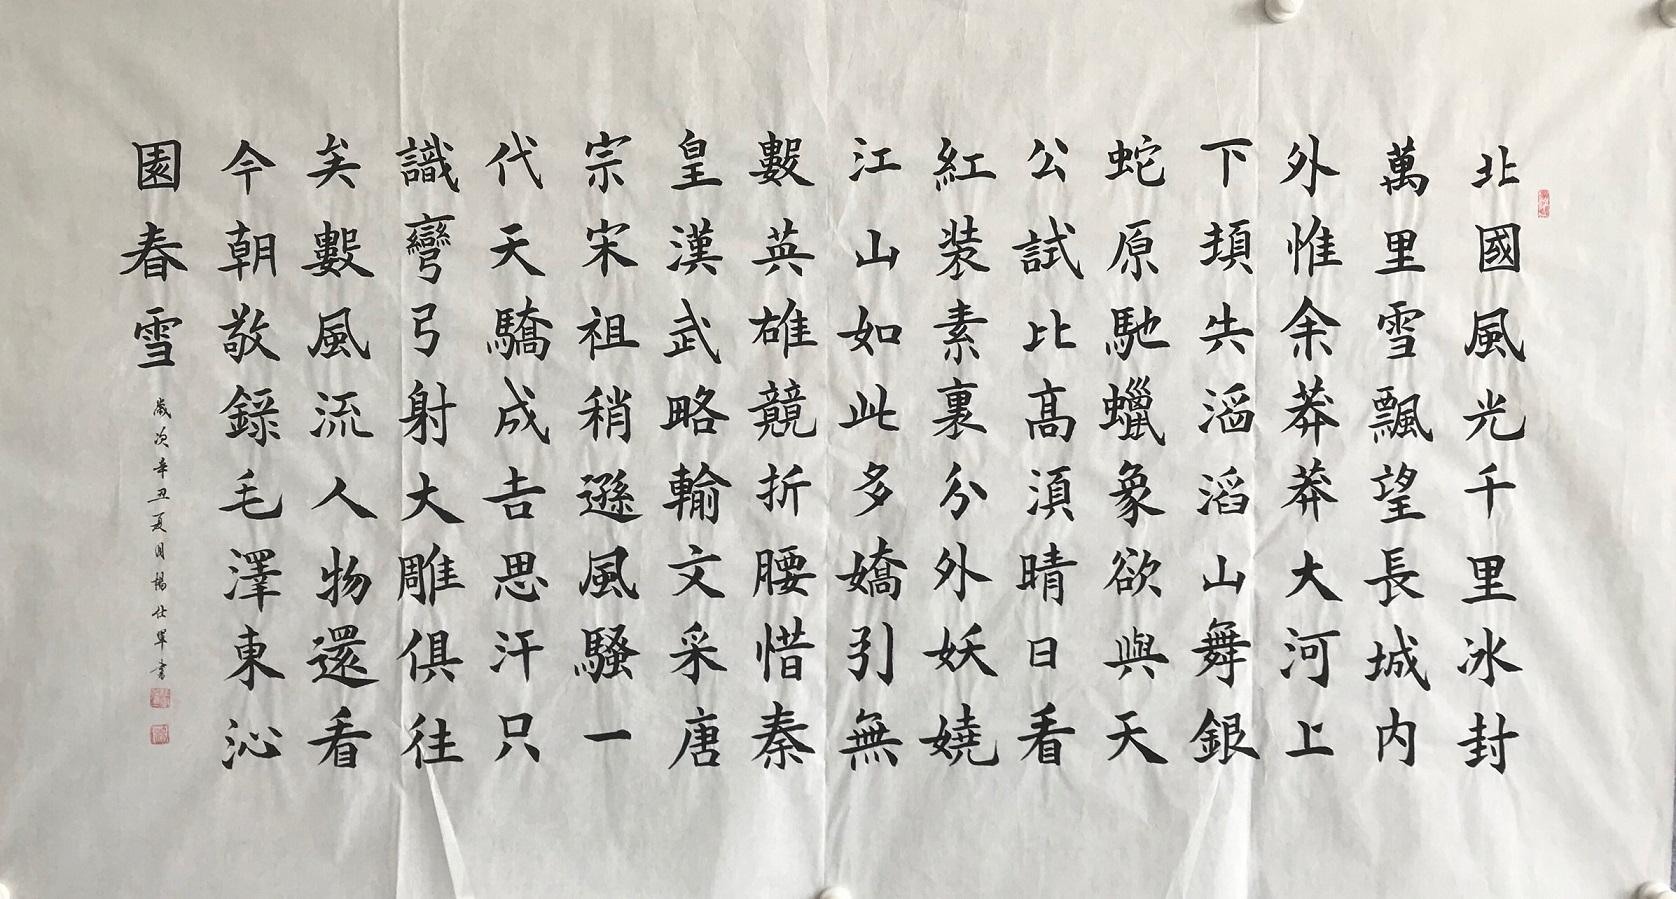 北國風光千里冰封
萬里雪飄望長城内
外惟余莽莽大河上
下頓失滔滔山舞銀
蛇原馳蠟象欲與天
公試比高須晴日看
紅裝素裹分外妖嬈
江山如此多嬌引無
數英雄競折腰惜秦
皇漢武略輸文采唐
宗宋祖稍遜風騷一
代天驕成吉思汗只
識彎弓射大雕俱往
矣數風流人物還看
今朝敬錄毛澤東沁
園春雪 歲次辛丑夏月楊仕軍書